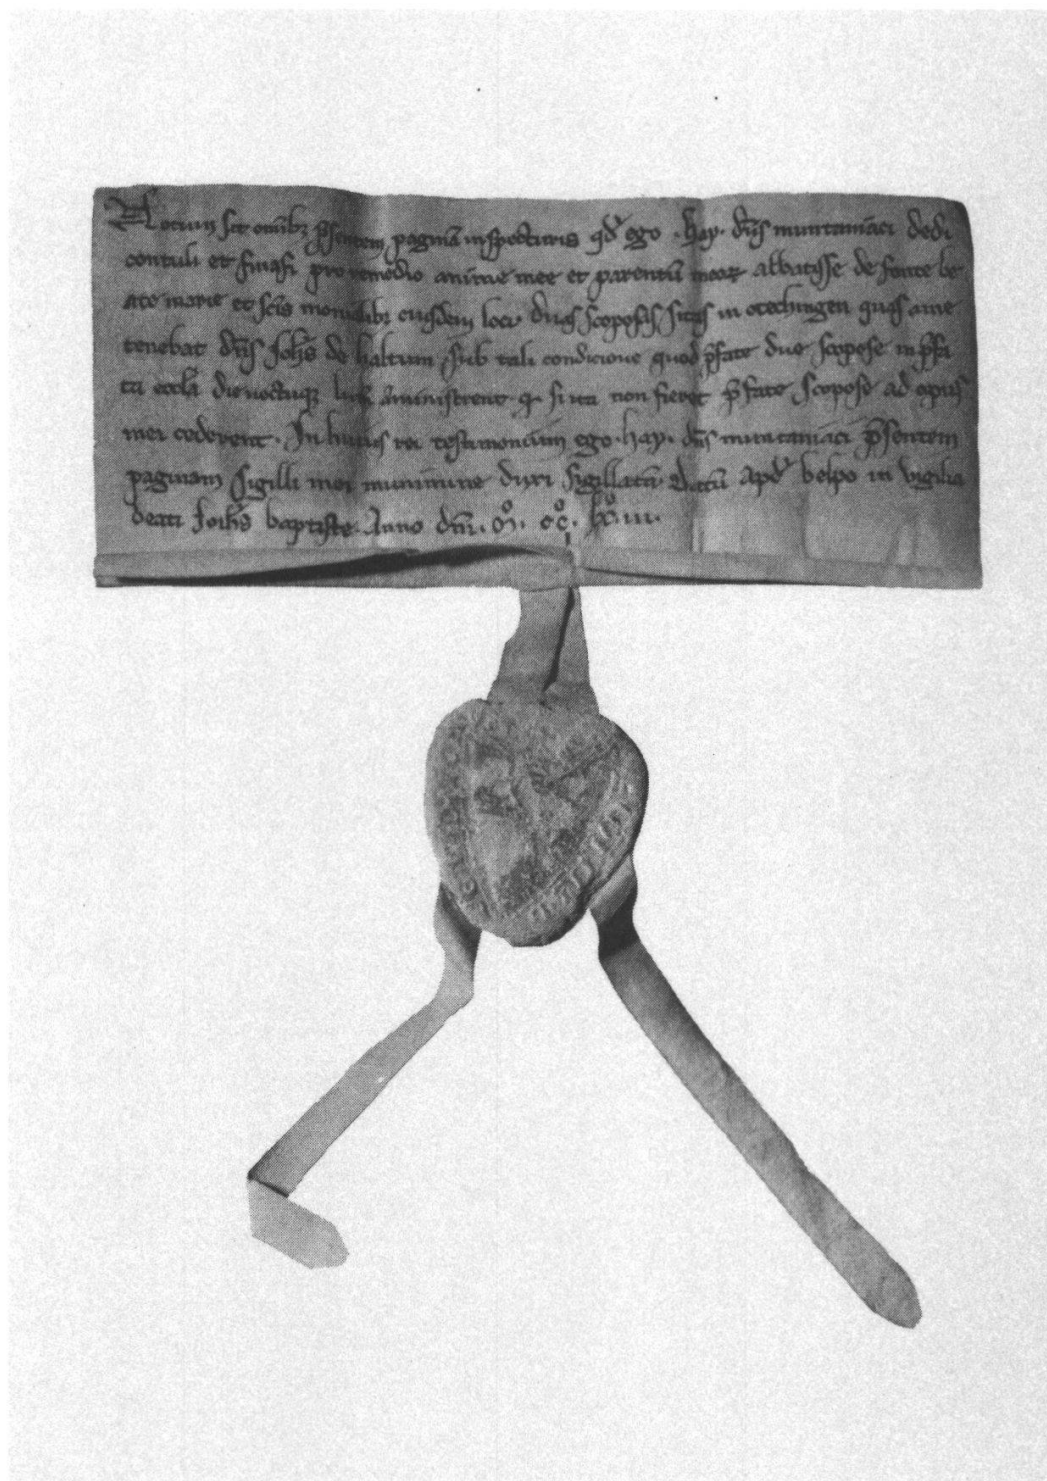 Notum sit om̄ibꝫ p̄sentem paginā inspecturis qd̄ ego · hay · dn̄s muntaniaci dedi
contuli et pro remedio anime mee et parentū meoꝝ abbatisse de fonte be
ate marie et scīs monialibꝫ eiusdem loci duas scoposas sitas in otechingen quas ante
tenebat dn̄s Joh̄s de haltum sub tali condicione quod p̄fate due scopose in p̄fa
ta eccl̄a die noctuqꝫ aministrent si ita non fieret p̄fate scopose ad opus
mei cederent · In huius rei testimonium ego · hay · dn̄s muntaniaci p̄sentem
paginam sigilli mei munimine duxi sigillatū Datū apd̄ belpo in vigilia
beati Joh̄is baptiste · Anno dn̄i · m̊ · cc̊ · lx̊iii ·